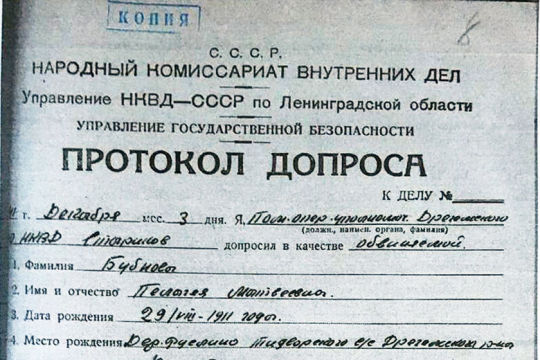 КОПИЯ
8
С. С. С. Р.
НАРОДНЫЙ КОМИССАРИАТ ВНУТРЕННИХ ДЕЛ
Управление НКВД—СССР по Ленинградской области
УПРАВЛЕНИЕ ГОСУДАРСТВЕННОЙ БЕЗОПАСНОСТИ
ПРОТОКОЛ ДОПРОСА
К ДЕЛУ №
г. Декабря мес. 3 дня. Я, Пом. опер. уполномот. Дрегельского
(должн., наимен. органа, фамилия)
НКВД Стариков допросил в качестве обвиняемой.
1. Фамилия Бубнова
2. Имя и отчество Пелагея Матвеевна.
3. Дата рождения 29/VIII-1911 года.
4. Место рождения Дер. Тидворского с/с Дрегельского р-на